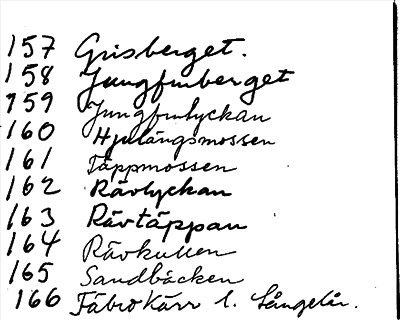 157 Grisberget.
158 Jungfruberget
159 Jungfrulyckan
160 Hjulängsmossen
161 Täppmossen
162 Rävlyckan
163 Rävtäppan
164 Rävkullen
165 Sandbäcken
166 Fäbro Kärr l.